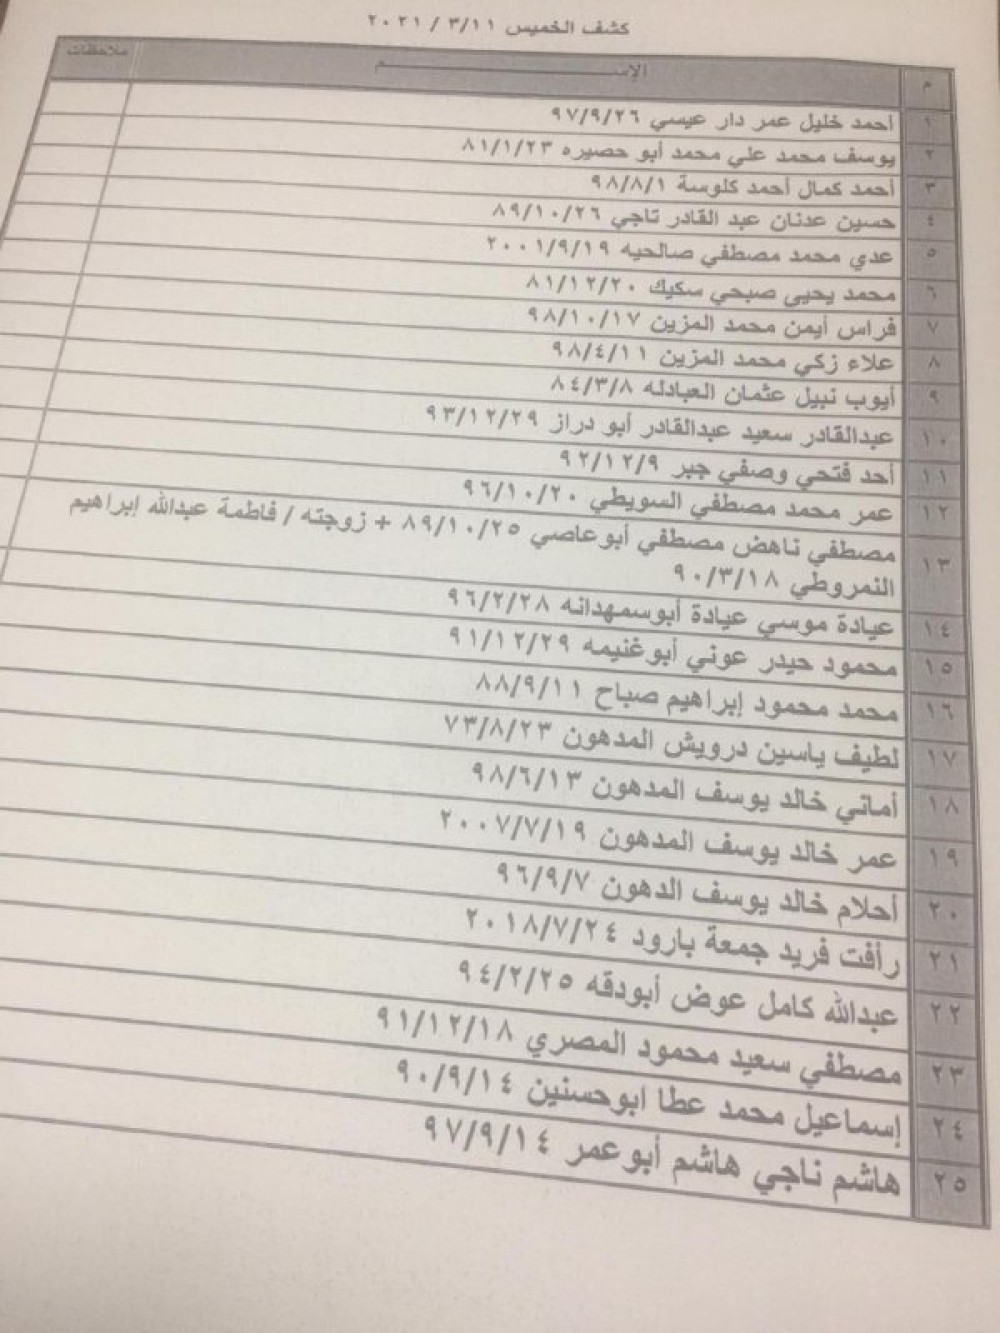 كشف الخميس ٣/١١ / ٢٠٢١
م الإســـــــــــم ملاحظات
١ أحمد خليل عمر دار عيسي ٩٧/٩/٢٦
٢ يوسف محمد علي محمد أبو حصيره ٨١/١/٢٣
٣ أحمد كمال أحمد كلوسة ٩٨/٨/١
٤ حسين عدنان عبد القادر تاجي ٨٩/١٠/٢٦
٥ عدي محمد مصطفي صالحيه ٢٠٠١/٩/١٩
٦ محمد يحيى صبحي سكيك ٨١/١٢/٢٠
٧ فراس أيمن محمد المزين ٩٨/١٠/١٧
٨ علاء زكي محمد المزين ٩٨/٤/١١
٩ أيوب نبيل عثمان العبادله ٨٤/٣/٨
١٠ عبدالقادر سعيد عبدالقادر أبو دراز ٩٣/١٢/٢٩
١١ أحد فتحي وصفي جبر ٩٢/١٢/٩
١٢ عمر محمد مصطفي السويطي ٩٦/١٠/٢٠
١٣ مصطفي ناهض مصطفي أبوعاصي ٨٩/١٠/٢٥ + زوجته / فاطمة عبدالله إبراهيم
النمروطي ٩٠/٣/١٨
١٤ عيادة موسي عيادة أبوسمهدانه ٩٦/٢/٢٨
١٥ محمود حيدر عوني أبوغنيمه ٩١/١٢/٢٩
١٦ محمد محمود إبراهيم صباح ٨٨/٩/١١
١٧ لطيف ياسين درويش المدهون ٧٣/٨/٢٣
١٨ أماني خالد يوسف المدهون ٩٨/٦/١٣
١٩ عمر خالد يوسف المدهون ٢٠٠٧/٧/١٩
٢٠ أحلام خالد يوسف الدهون ٩٦/٩/٧
٢١ رأفت فريد جمعة بارود ٢٠١٨/٧/٢٤
٢٢ عبدالله كامل عوض أبودقه ٩٤/٢/٢٥
٢٣ مصطفي سعيد محمود المصري ٩١/١٢/١٨
٢٤ إسماعيل محمد عطا ابوحسنين ٩٠/٩/١٤
٢٥ هاشم ناجي هاشم أبوعمر ٩٧/٩/١٤